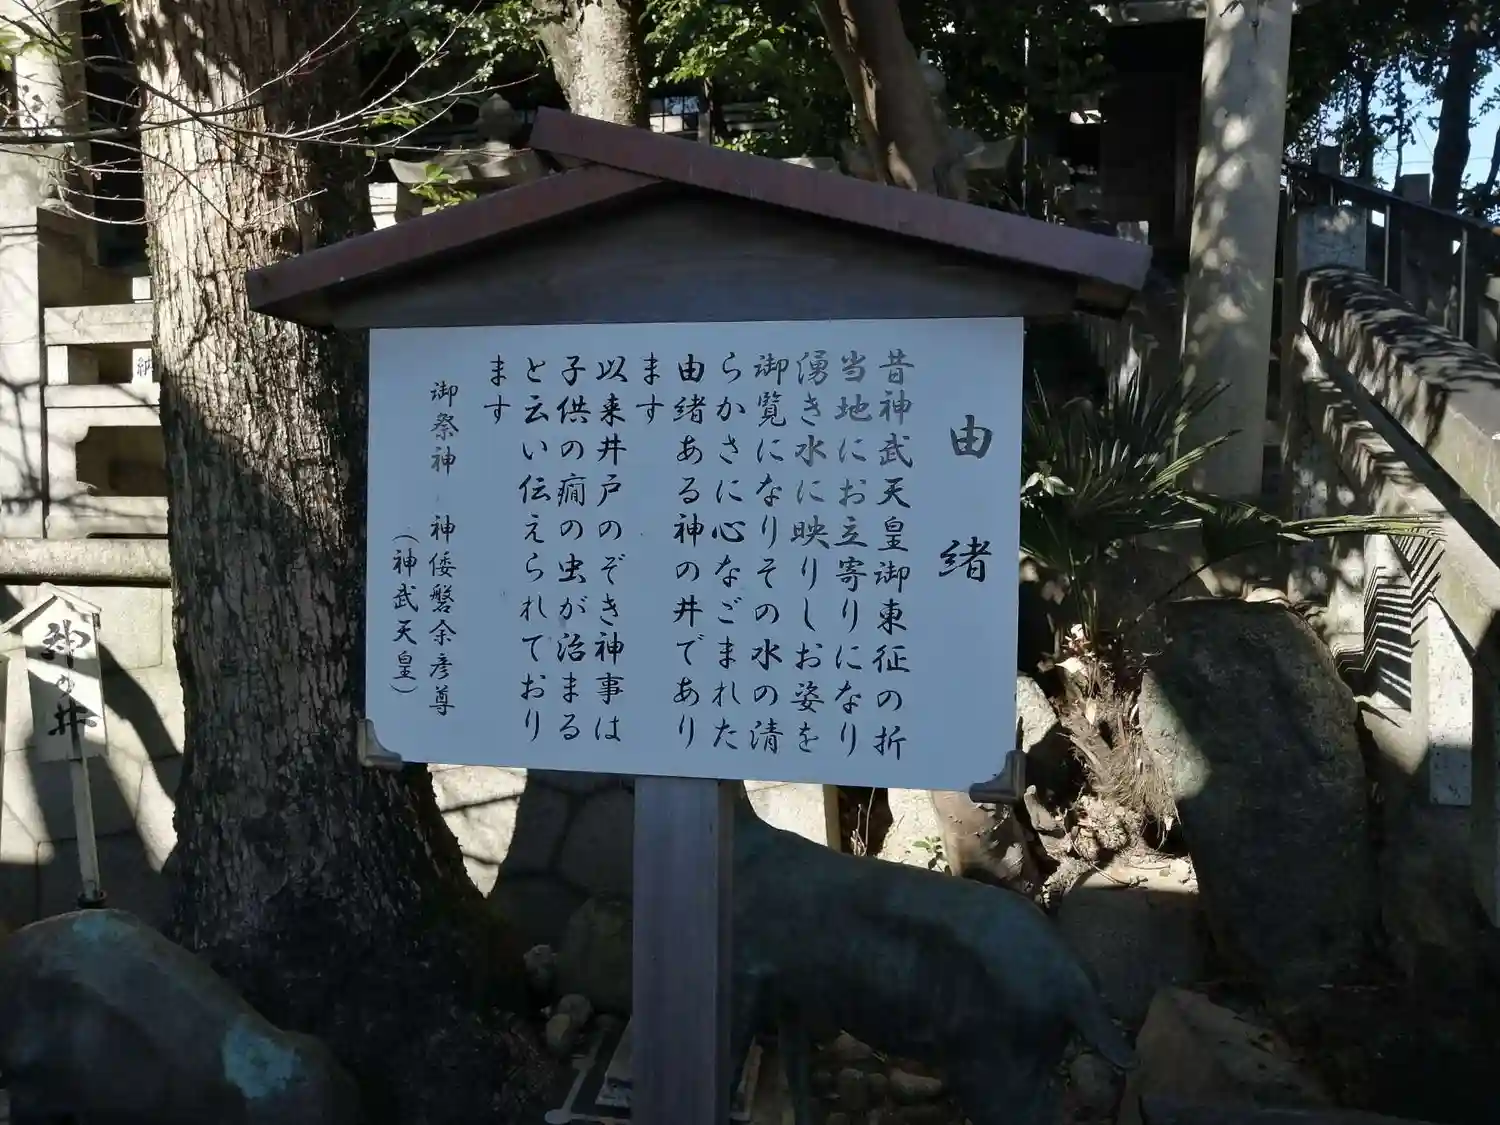 由緒
昔神武天皇御東征の折
当地にお立寄りになり
湧き水に映りしお姿を
御覧になりその水の清
らかさに心なごまれた
由緒ある神の井であり
ます
以来井戸のぞき神事は
子供の癇の虫が治まる
と云い伝えられており
ます
御祭神 神倭磐余彦尊
(神武天皇)
神の井